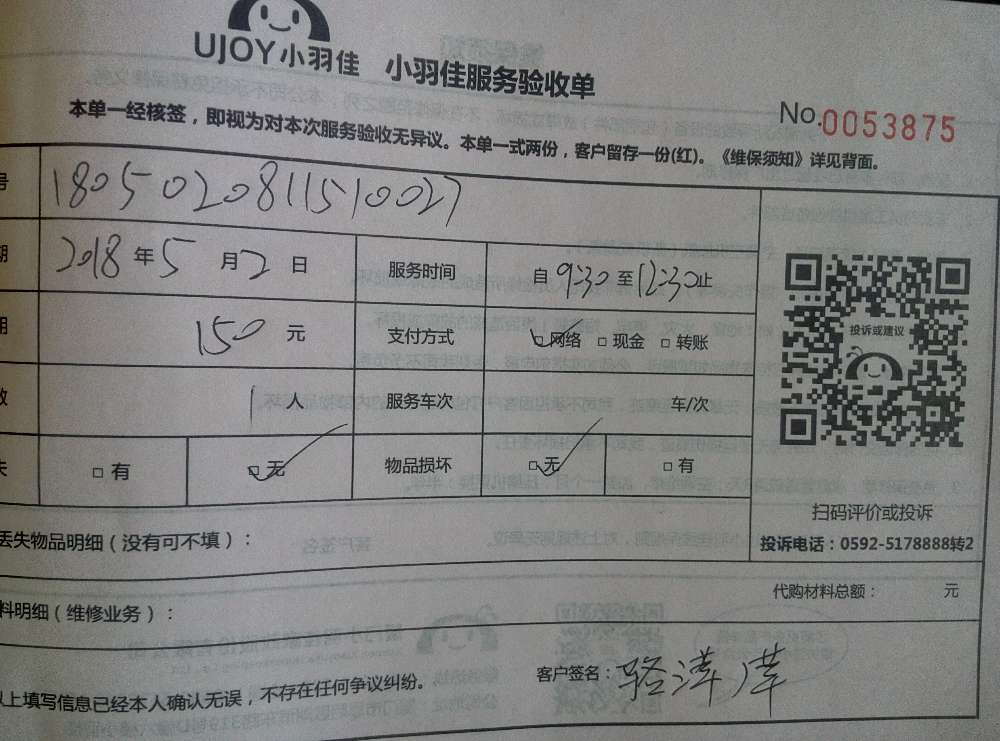 UJOY小羽佳 小羽佳服务验收单
No.0053875
本单一经核签，即视为对本次服务验收无异议。本单一式两份，客户留存一份(红)。《维保须知》详见背面。
号 1805020811510027
期 2018年5月2日 服务时间 自9:30至12:30止
用 150元 支付方式 □网络 □现金 □转账
数 1人 服务车次 车/次
失 □有 □无 物品损坏 □无 □有
投诉或建议
扫码评价或投诉
投诉电话：0592-5178888转2
丢失物品明细（没有可不填）：
料明细（维修业务）： 代购材料总额： 元
以上填写信息已经本人确认无误，不存在任何争议纠纷。 客户签名：